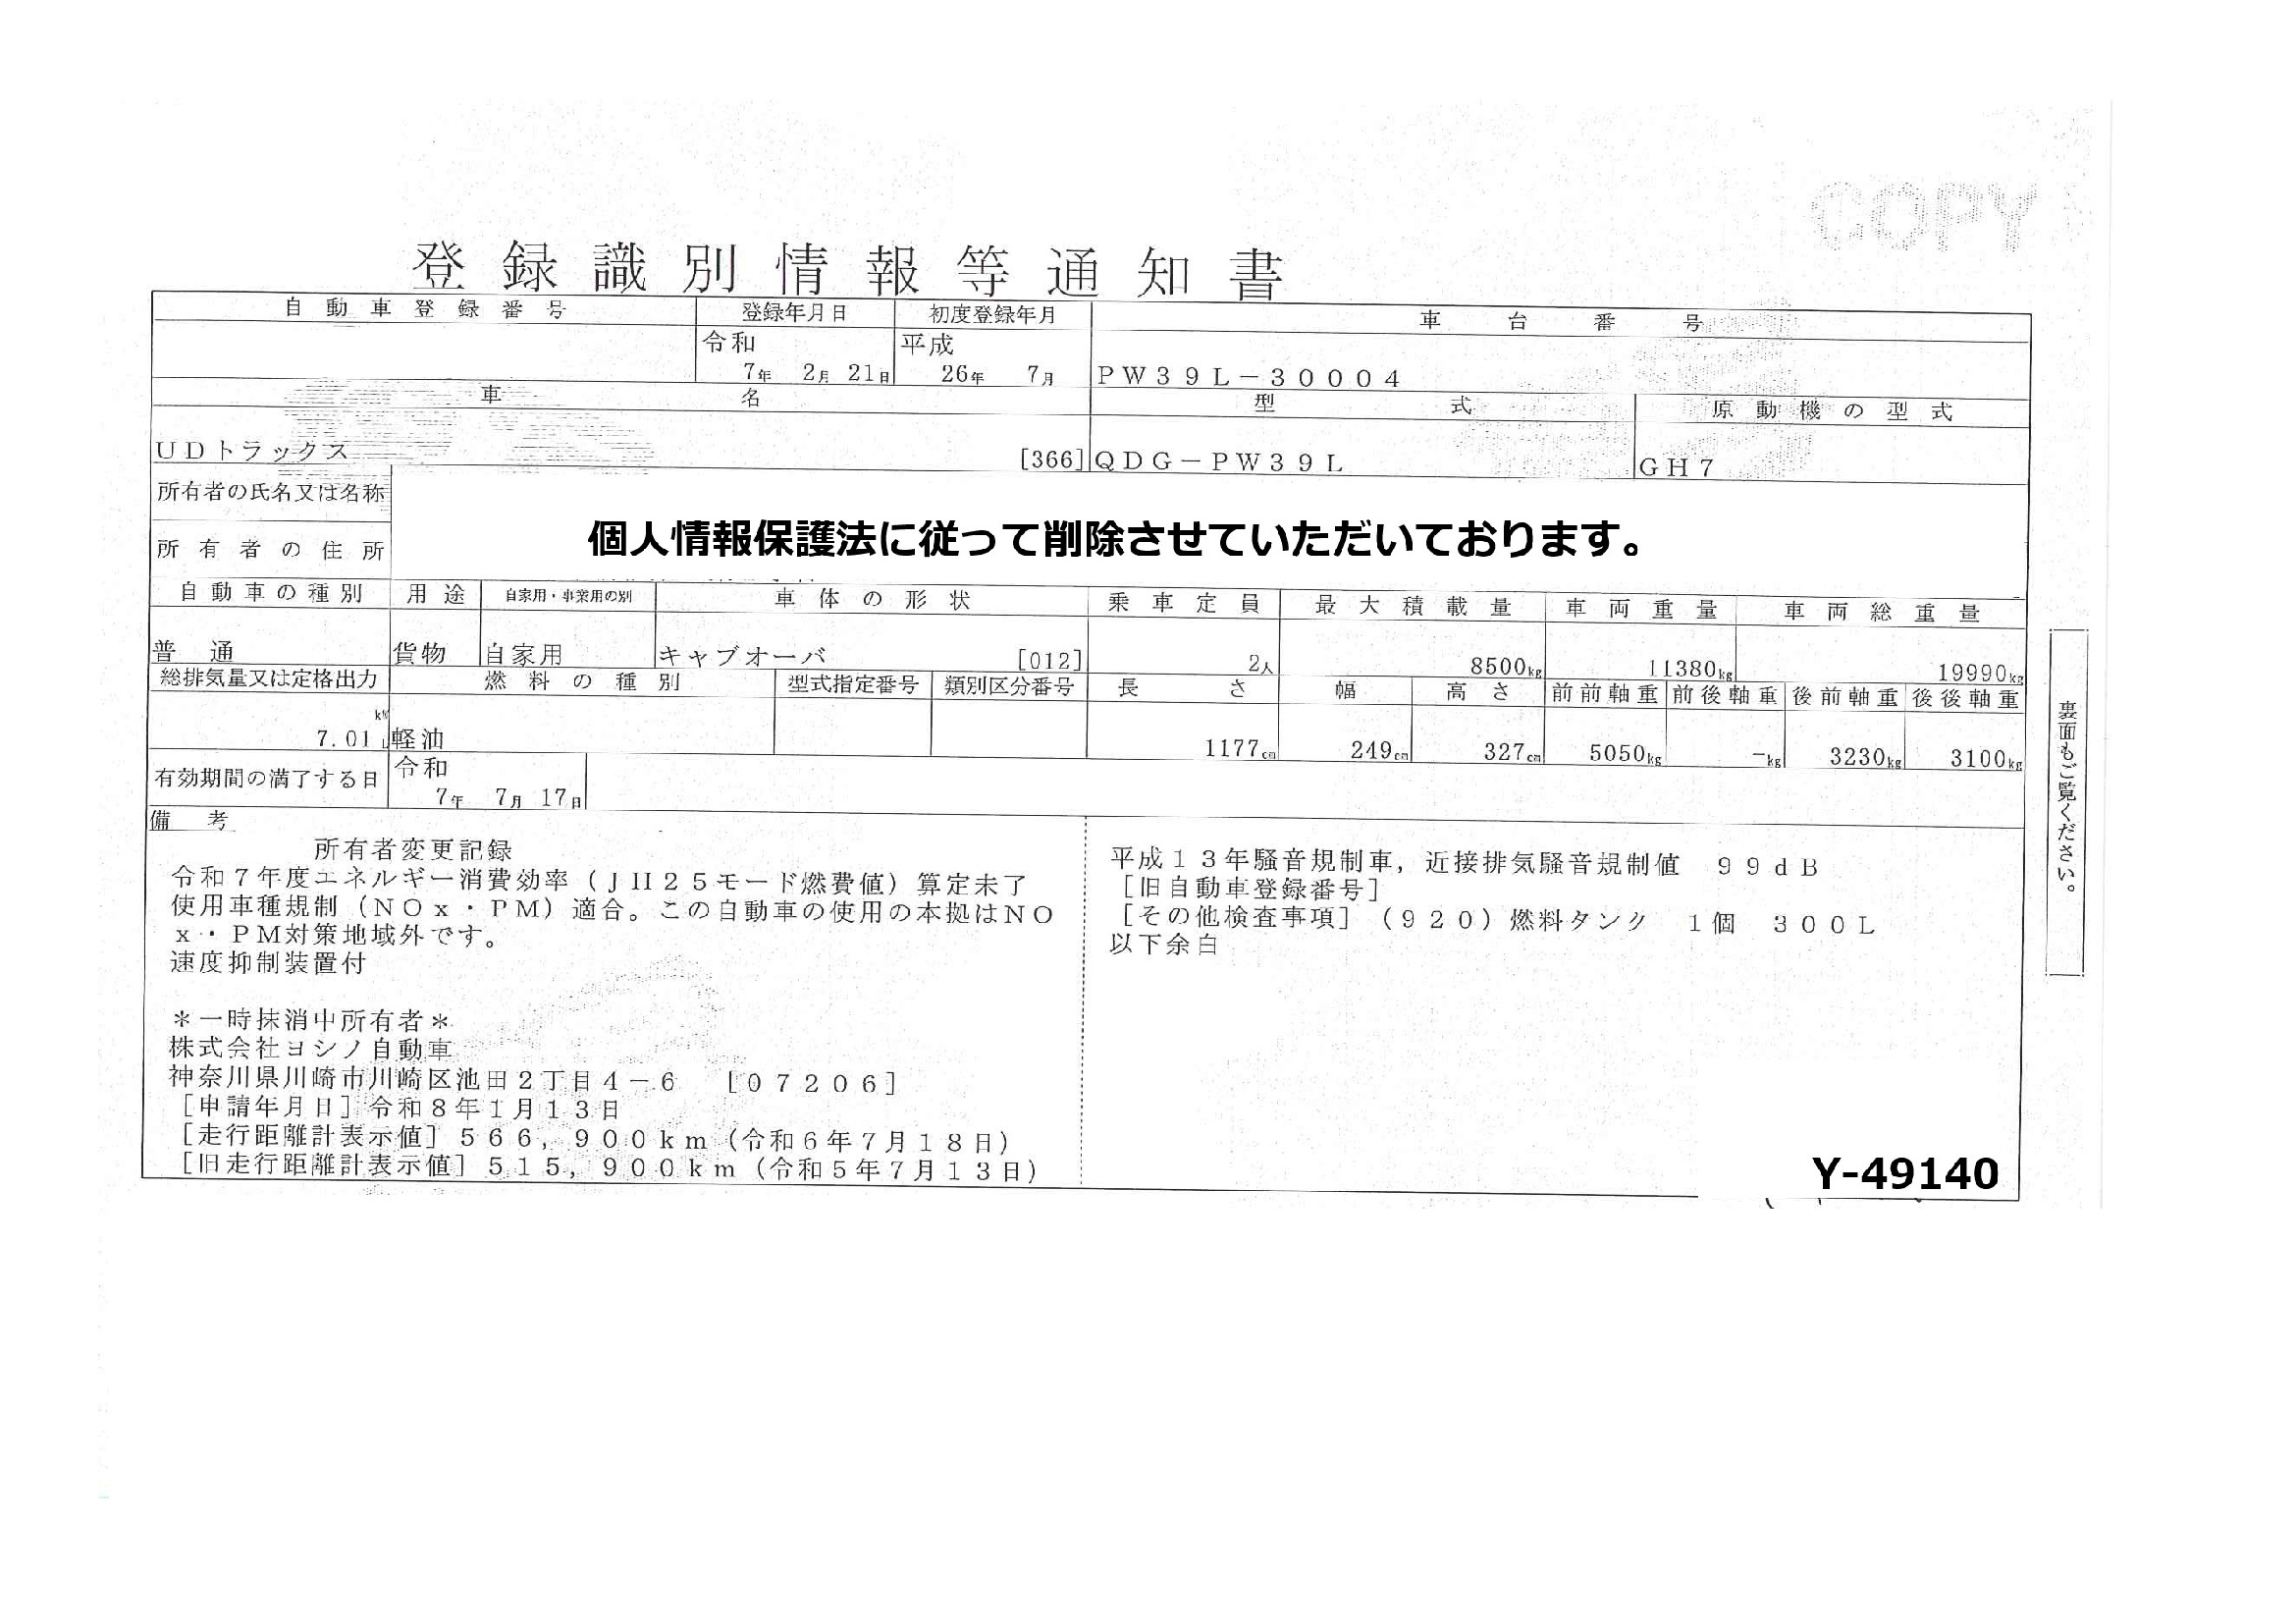 COPY
登録識別情報等通知書
自動車登録番号 登録年月日 初度登録年月 車台番号
令和 平成
7年 2月 21日 26年 7月 PW39L-30004
車名 型式 原動機の型式
UDトラックス [366] QDG-PW39L GH7
所有者の氏名又は名称
個人情報保護法に従って削除させていただいております。
所有者の住所
自動車の種別 用途 自家用・事業用の別 車体の形状 乗車定員 最大積載量 車両重量 車両総重量
普通 貨物 自家用 キャブオーバ [012] 2人 8500kg 11380kg 19990kg
総排気量又は定格出力 燃料の種別 型式指定番号 類別区分番号 長さ 幅 高さ 前前軸重 前後軸重 後前軸重 後後軸重
kW
7.01 L 軽油 1177cm 249cm 327cm 5050kg -kg 3230kg 3100kg
有効期間の満了する日 令和
7年 7月 17日
備考
所有者変更記録
令和7年度エネルギー消費効率(JH25モード燃費値)算定未了
使用車種規制(NOx・PM)適合。この自動車の使用の本拠はNO
x・PM対策地域外です。
速度抑制装置付
*一時抹消中所有者*
株式会社ヨシノ自動車
神奈川県川崎市川崎区池田2丁目4-6 [07206]
[申請年月日]令和8年1月13日
[走行距離計表示値]566,900km(令和6年7月18日)
[旧走行距離計表示値]515,900km(令和5年7月13日)
平成13年騒音規制車,近接排気騒音規制値 99dB
[旧自動車登録番号]
[その他検査事項](920)燃料タンク 1個 300L
以下余白
裏面もご覧ください。
Y-49140